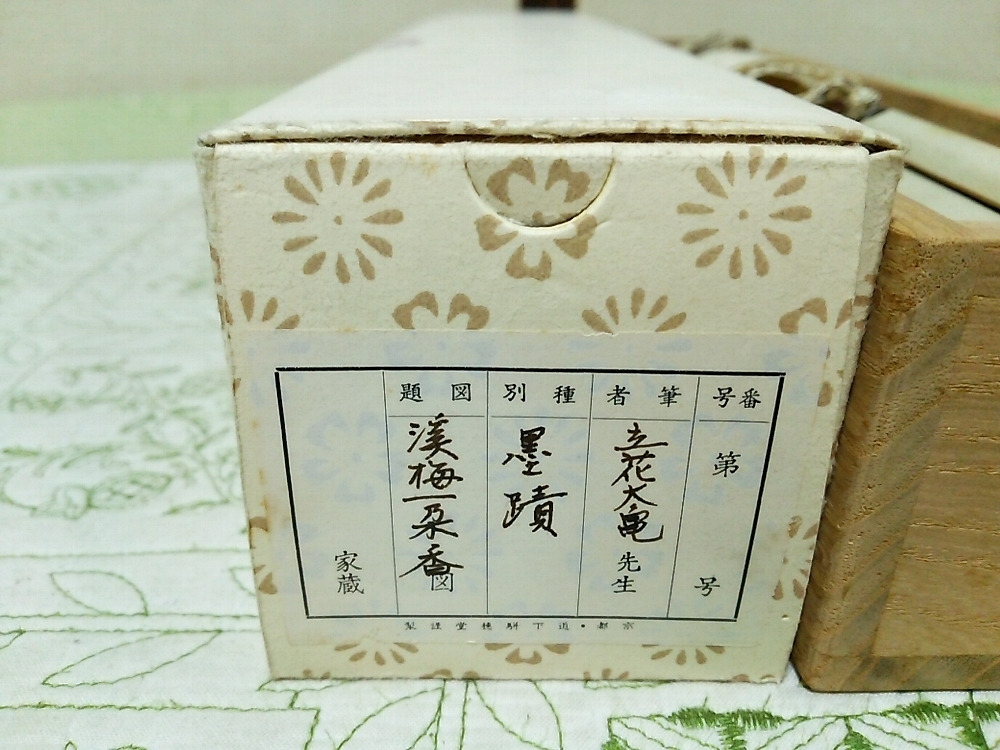 番号
第 号
筆者
立花大亀先生
種別
墨蹟
図題
溪梅一朶香図
家蔵
京都・
堂謹製